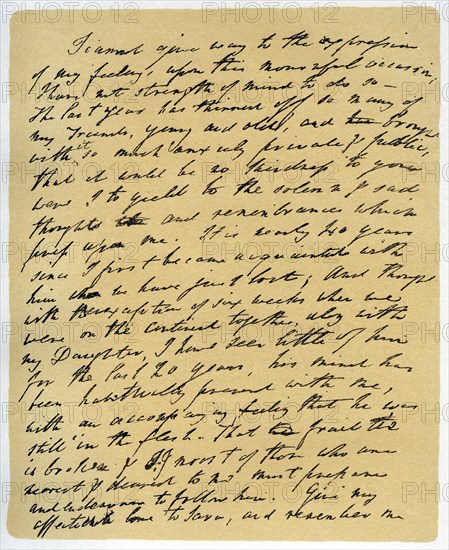 I cannot give way to the expression
of my feelings upon this mournful occasion;
I have not strength of mind to do so —
The last year has thinned off so many of
my Friends, young and old, and brought
with it so much anxiety private & public,
that it would be no kindness to you
were I to yield to the solemn & sad
thoughts and remembrances which
press upon me. It is nearly 40 years
since I first became acquainted with
him we have just lost; and though
with the exception of six weeks when we
were on the continent together, along with
my Daughter, I have seen little of him
for the last 20 years, his mind has
been habitually present with me,
with an accompanying feeling that he was
still in the flesh. That frail tie
is broken & I, & most of those who are
nearest & dearest to me must prepare
and endeavour to follow him. Give my
affectionate love to Sara, and remember me